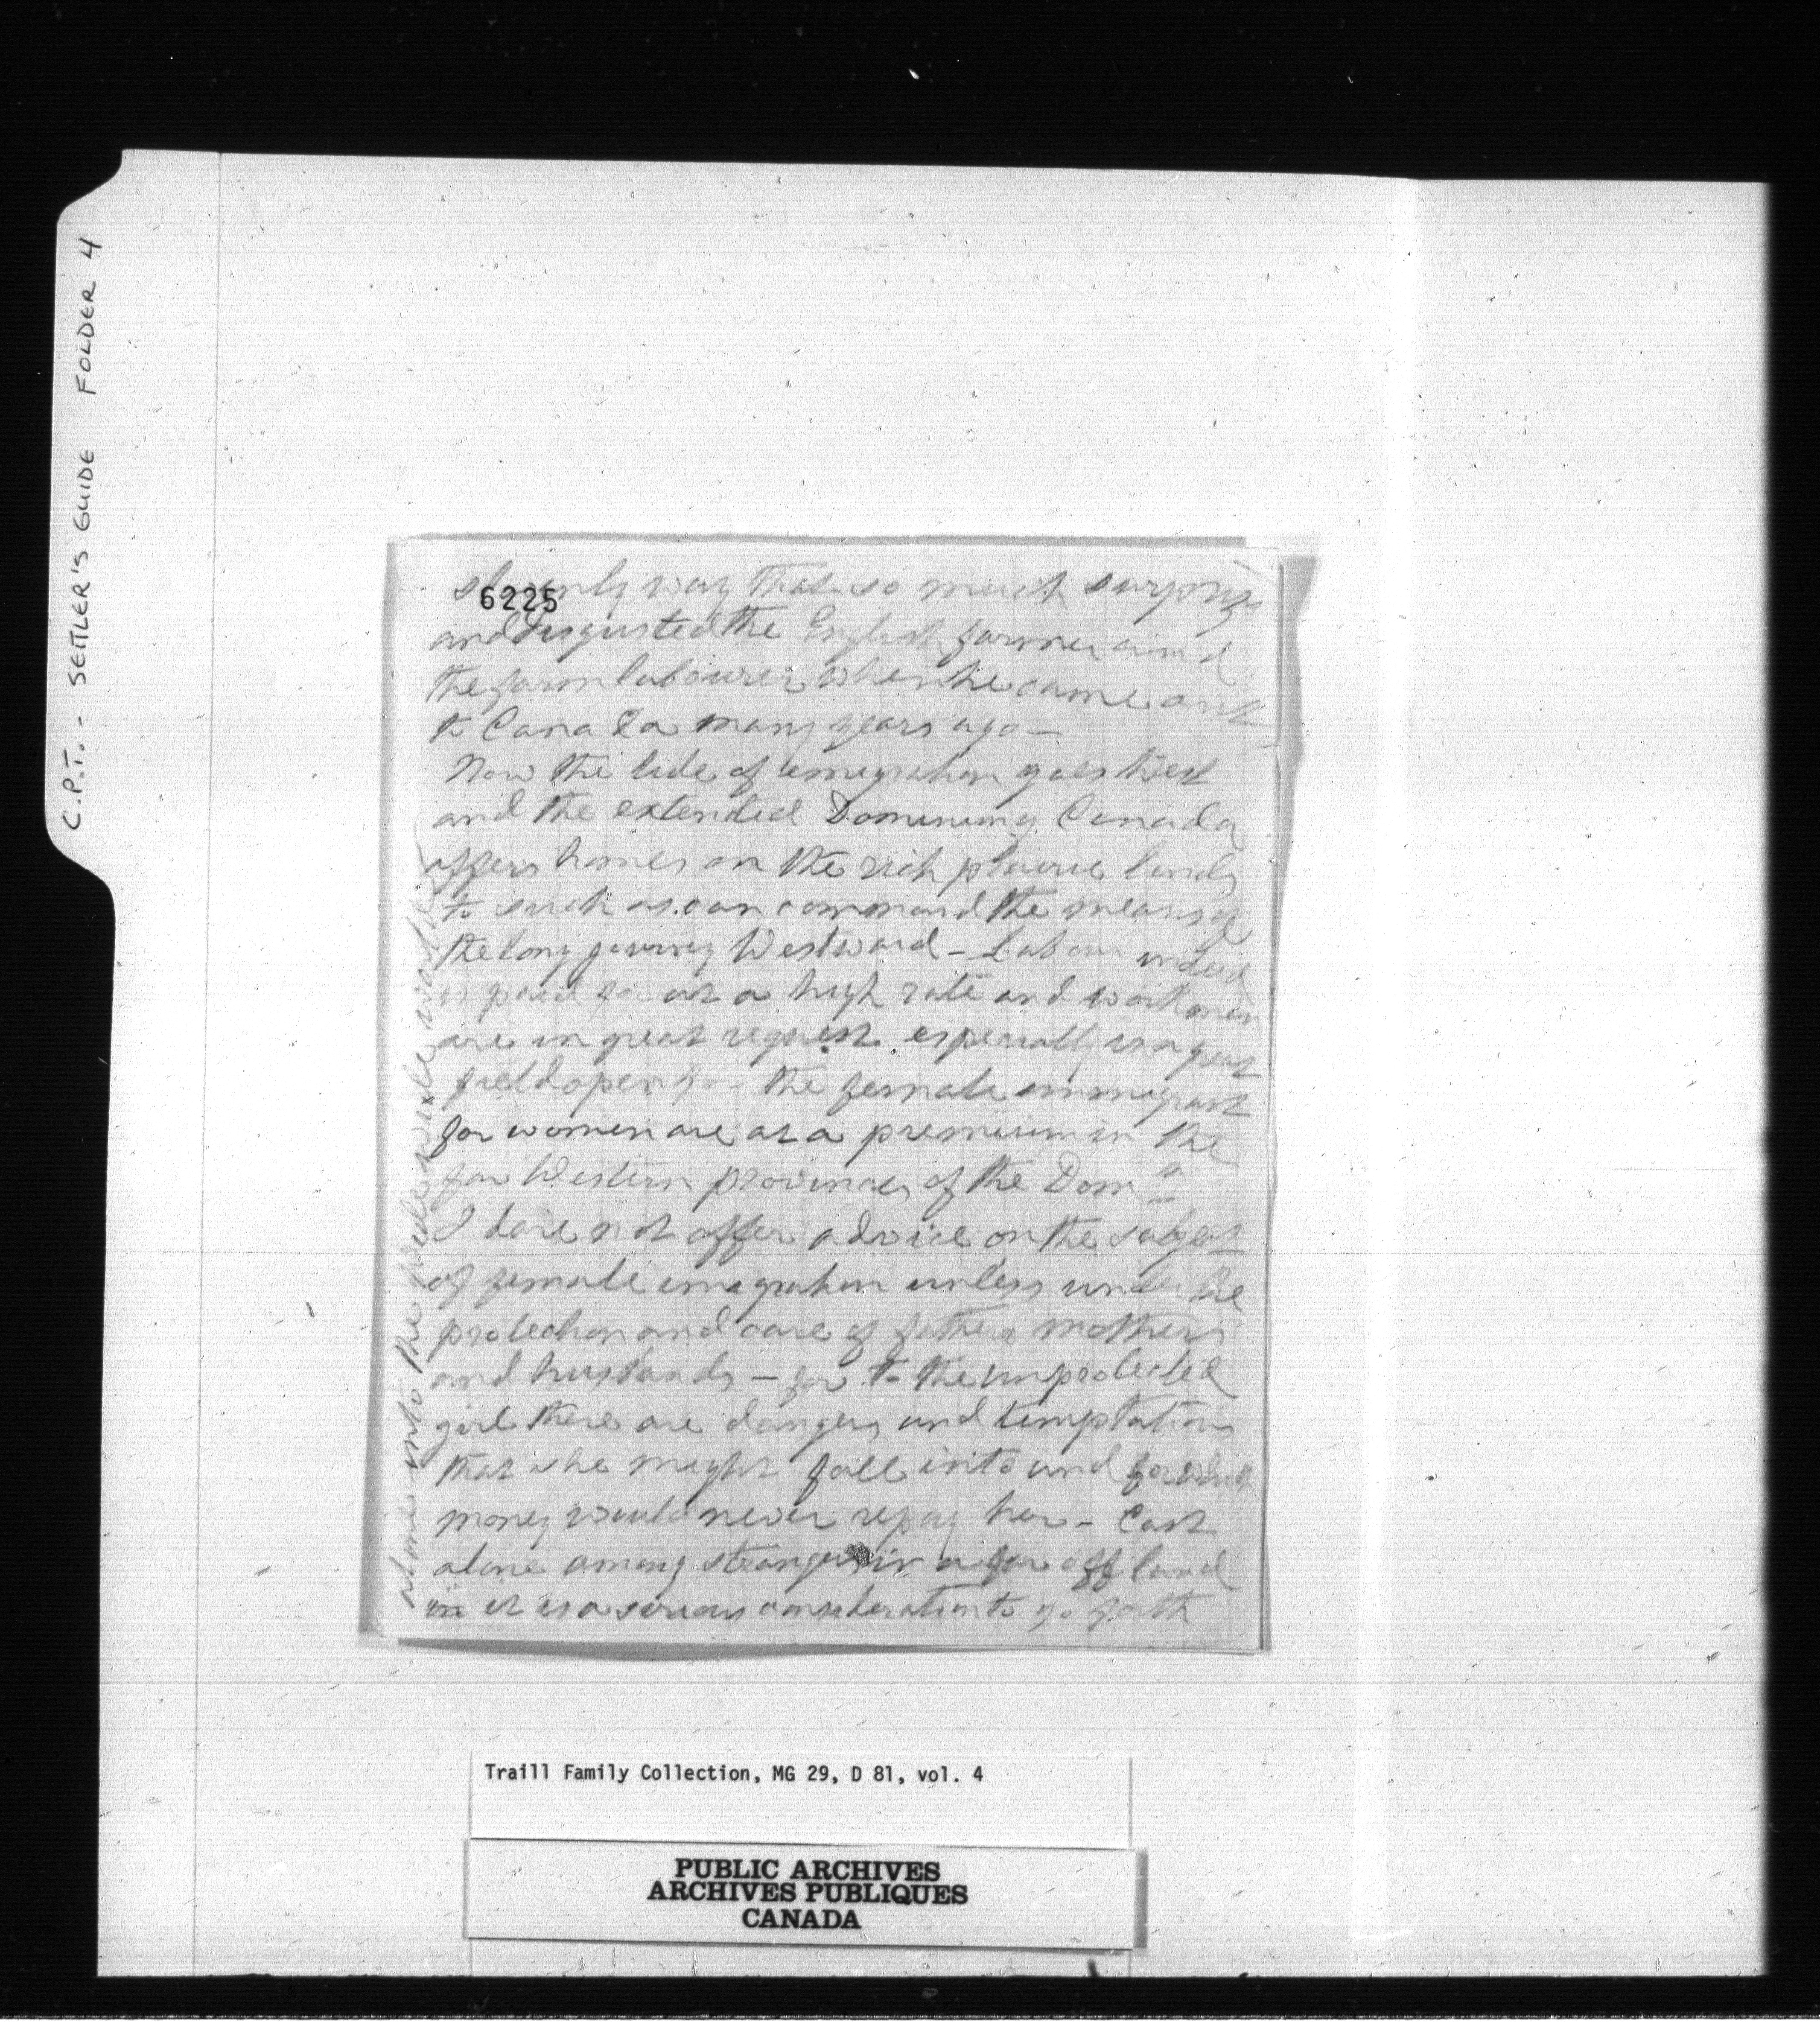 C.P.T. - SETTLER'S GUIDE FOLDER 4
6225
slovenly way that so much surprize
and disgusted the English farmer and
the farm labourer when he came out
to Canada many years ago —
Now the tide of emegration goes West
and the extended Domining Canada
offers homes on the rich prairie lands
to such as can command the means of
the long journey Westward - Labour indeed
is paid for at a high rate and workmen
are in great request. especially is a great
field open for the female immigrant
for women are at a premium in the
far Western provinces of the Domn
I dare not offer advice on the subject
of female emegration unless under the
protection and care of fathers mothers
and husbands — for to the unprotected
girl there are dangers and temptations
that she might fall into and for which
money would never repay her - Cast
alone among strangers in a far off land
in it is a serious consideration to go forth
alone into the wide wide world
Traill Family Collection, MG 29, D 81, vol. 4
PUBLIC ARCHIVES
ARCHIVES PUBLIQUES
CANADA